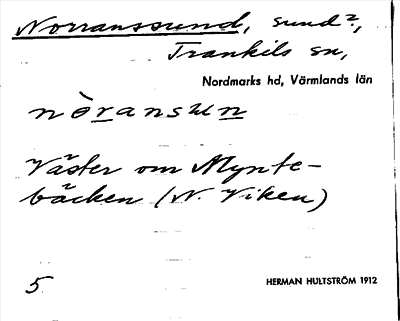 Norranssund, sund?,
Trankils sn,
Nordmarks hd, Värmlands län
nòransun
Väster om Mynte-
bäcken (N. Viken)
5 HERMAN HULTSTRÖM 1912